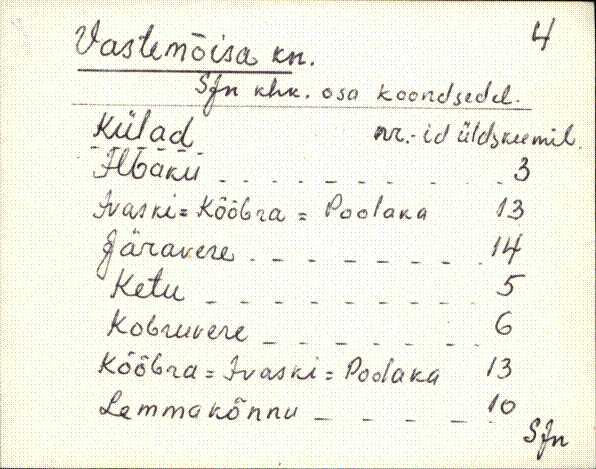 4
Vastemõisa kn.
Sjn khk. osa koondsedel.
Külad nr.-id üldskeemil.
Ilbaku _ _ _ _ _ _ _ _ 3
Ivaski = Kõõbra = Poolaka 13
Järavere _ _ _ _ _ _ _ 14
Ketu _ _ _ _ _ _ _ _ 5
Kobruvere _ _ _ _ _ _ 6
Kõõbra = Ivaski = Poolaka 13
Lemmakõnnu _ _ _ _ _ 10
Sjn